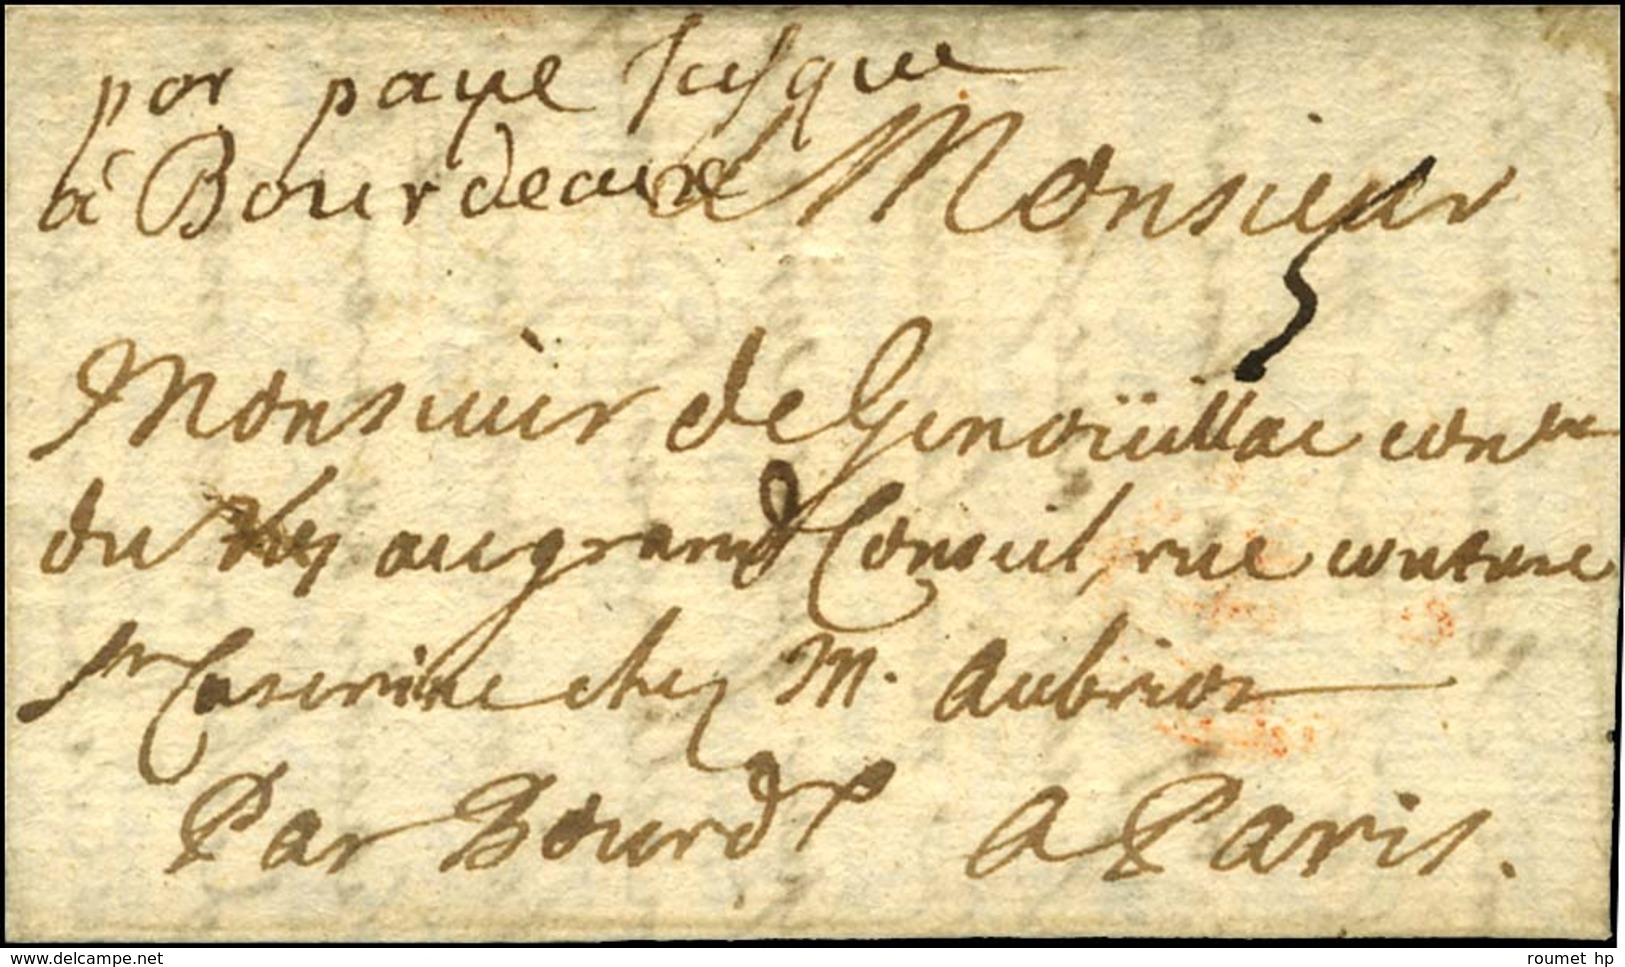 por paye Jusque
à Bourdeaux
a Monsieur
5
Monsieur de Genoüillac con.er
du Roy au grand Conseil, rue couture
Ste Caterine chez M. Aubriot
Par Bourdx a Paris.
www.delcampe.net
roumet hp